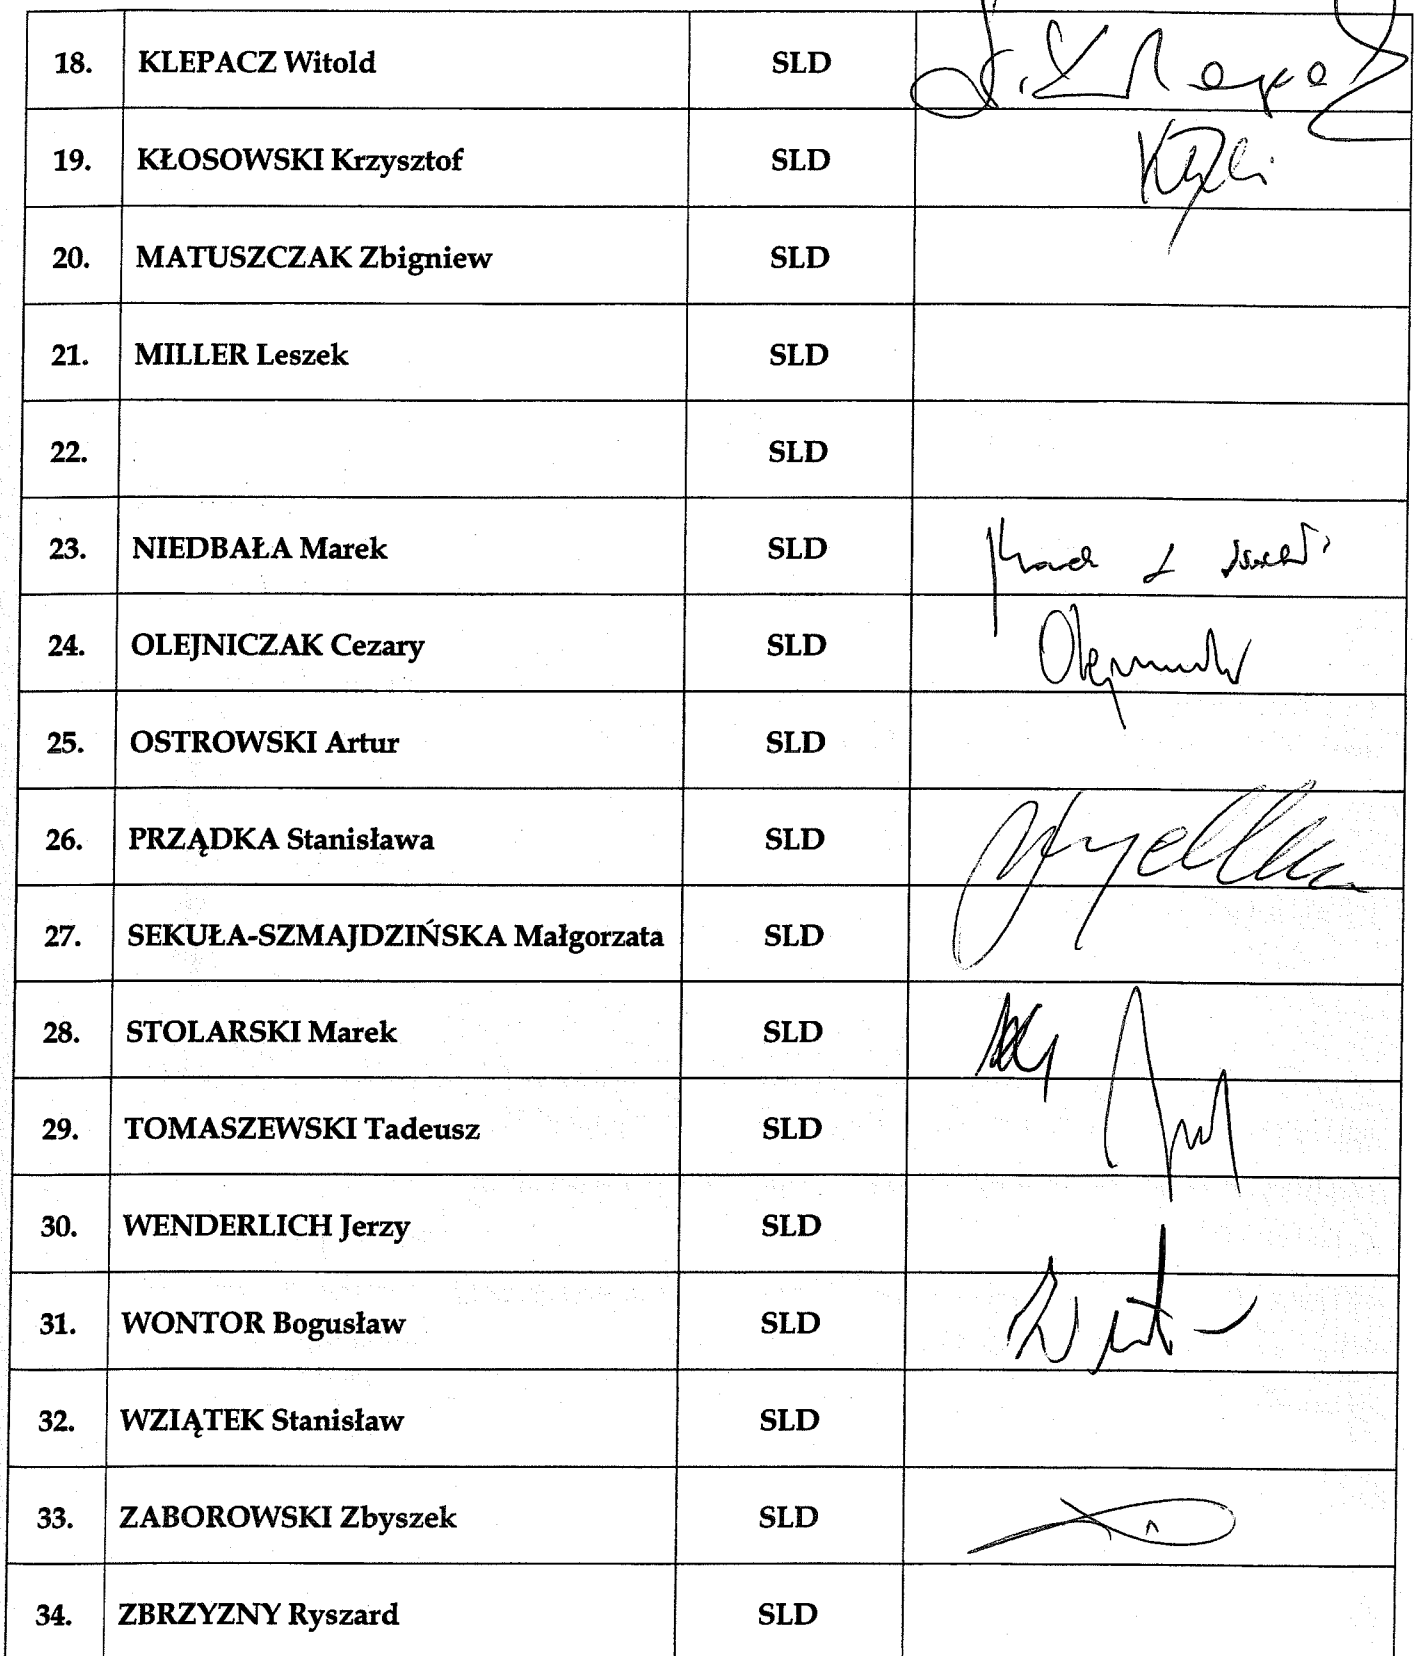 18. KLEPACZ Witold SLD
19. KŁOSOWSKI Krzysztof SLD
20. MATUSZCZAK Zbigniew SLD
21. MILLER Leszek SLD
22. SLD
23. NIEDBAŁA Marek SLD
24. OLEJNICZAK Cezary SLD
25. OSTROWSKI Artur SLD
26. PRZĄDKA Stanisława SLD
27. SEKUŁA-SZMAJDZIŃSKA Małgorzata SLD
28. STOLARSKI Marek SLD
29. TOMASZEWSKI Tadeusz SLD
30. WENDERLICH Jerzy SLD
31. WONTOR Bogusław SLD
32. WZIĄTEK Stanisław SLD
33. ZABOROWSKI Zbyszek SLD
34. ZBRZYZNY Ryszard SLD